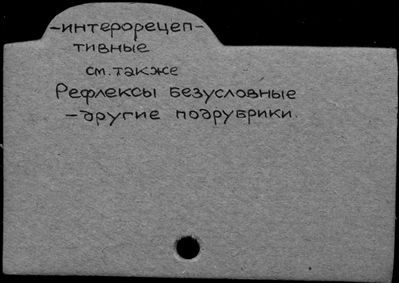 -интерорецеп-
тивные
см. также
Рефлексы безусловные
-другие подрубрики.